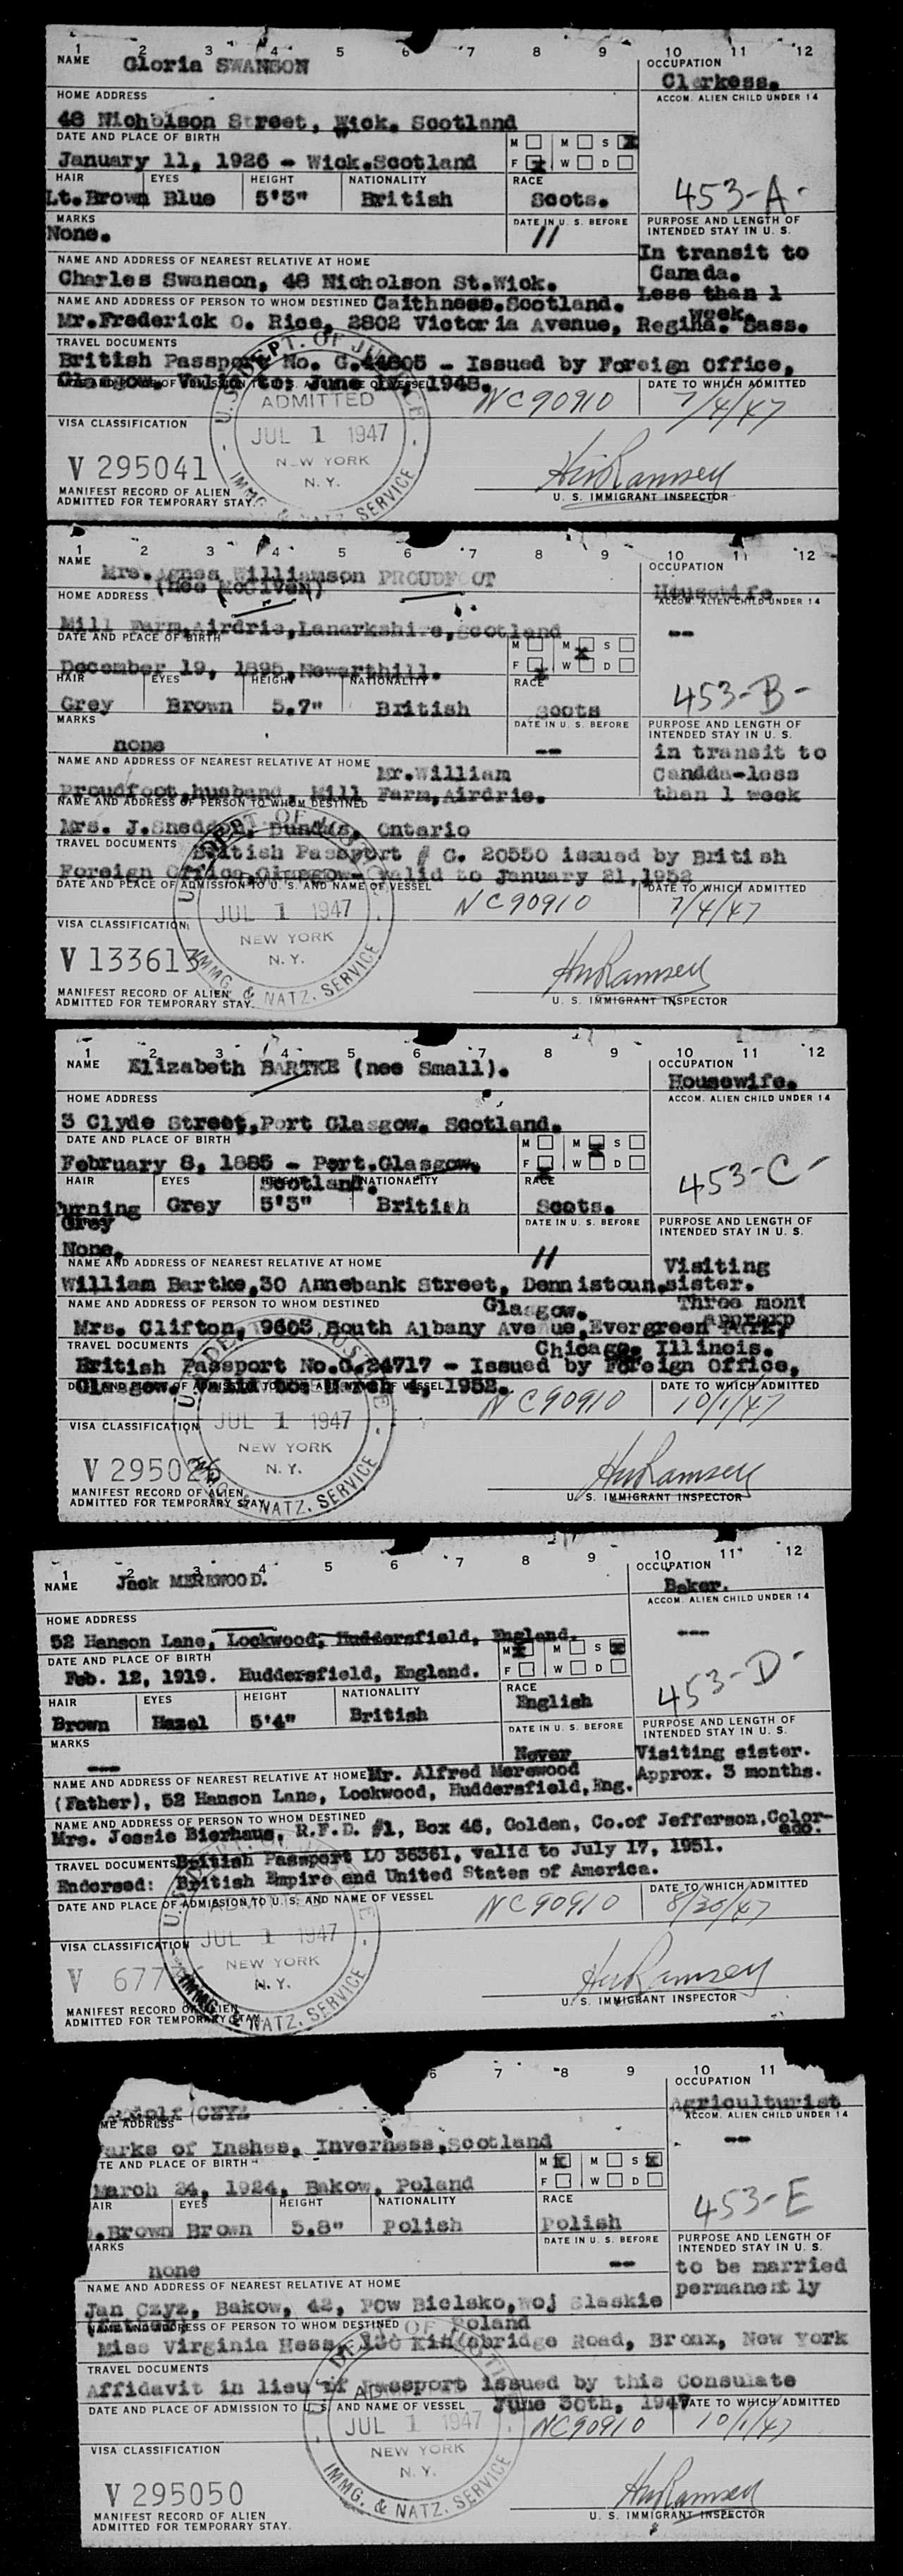 1 2 3 4 5 6 7 8 9 10 11 12
NAME Gloria SWANSON
OCCUPATION
Clerkess.
HOME ADDRESS
ACCOM. ALIEN CHILD UNDER 14
48 Nicholson Street, Wick. Scotland
DATE AND PLACE OF BIRTH
M M S X
January 11, 1926 - Wick.Scotland
F X W D
453-A-
HAIR EYES HEIGHT NATIONALITY RACE
Lt.Brown Blue 5'3" British Scots.
MARKS
DATE IN U. S. BEFORE
PURPOSE AND LENGTH OF INTENDED STAY IN U. S.
None.
11
In transit to
Canada.
Less than 1
week.
NAME AND ADDRESS OF NEAREST RELATIVE AT HOME
Charles Swanson, 48 Nicholson St.Wick.
NAME AND ADDRESS OF PERSON TO WHOM DESTINED Caithness.Scotland.
Mr.Frederick O. Rice, 2802 Victoria Avenue, Regina. Sass.
TRAVEL DOCUMENTS
British Passport No. G.44605 - Issued by Foreign Office,
Glasgow. Valid to: June 1948.
DATE TO WHICH ADMITTED
NC90910 7/4/47
VISA CLASSIFICATION
U.S. DEPT. OF JUSTICE
ADMITTED
JUL 1 1947
NEW YORK
N. Y.
IMMG. & NATZ. SERVICE
V 295041
MANIFEST RECORD OF ALIEN
ADMITTED FOR TEMPORARY STAY.
U. S. IMMIGRANT INSPECTOR
1 2 3 4 5 6 7 8 9 10 11 12
NAME Mrs. Agnes Williamson PROUDFOOT
OCCUPATION
HOME ADDRESS (nee McGivern)
Housewife
ACCOM. ALIEN CHILD UNDER 14
Mill Farm,Airdrie,Lanarkshire,Scotland
--
DATE AND PLACE OF BIRTH
M M X S
December 19, 1895,Newarthill.
F X W D
453-B-
HAIR EYES HEIGHT NATIONALITY RACE
Grey Brown 5.7" British Scots
MARKS
DATE IN U. S. BEFORE
PURPOSE AND LENGTH OF INTENDED STAY IN U. S.
none
--
in transit to
Candda-less
than 1 week
NAME AND ADDRESS OF NEAREST RELATIVE AT HOME Mr.William
Proudfoot,husband, Mill Farm,Airdrie.
NAME AND ADDRESS OF PERSON TO WHOM DESTINED
Mrs. J.Sneddon, Dundas, Ontario
TRAVEL DOCUMENTS British Passport # C. 20550 issued by British
Foreign Office Glasgow- valid to January 21,1952
DATE AND PLACE OF ADMISSION TO U. S. AND NAME OF VESSEL
DATE TO WHICH ADMITTED
NC90910 7/4/47
VISA CLASSIFICATION
JUL 1 1947
NEW YORK
N. Y.
IMMG. & NATZ. SERVICE
V 133613
MANIFEST RECORD OF ALIEN
ADMITTED FOR TEMPORARY STAY.
U. S. IMMIGRANT INSPECTOR
1 2 3 4 5 6 7 8 9 10 11 12
NAME Elizabeth BARTKE (nee Small).
OCCUPATION
Housewife.
HOME ADDRESS
ACCOM. ALIEN CHILD UNDER 14
3 Clyde Street,Port Glasgow. Scotland.
DATE AND PLACE OF BIRTH
M M X S
February 8, 1885 - Port.Glasgow.
F X W D
453-C-
Scotland.
HAIR EYES HEIGHT NATIONALITY RACE
Turning Grey 5'3" British Scots.
Grey
DATE IN U. S. BEFORE
PURPOSE AND LENGTH OF INTENDED STAY IN U. S.
None.
11
Visiting
sister.
Three mont
approxp
NAME AND ADDRESS OF NEAREST RELATIVE AT HOME
William Bartke,30 Annebank Street, Dennistoun,
Glasgow.
NAME AND ADDRESS OF PERSON TO WHOM DESTINED
Mrs. Clifton, 9603 South Albany Avenue,Evergreen Park,
Chicago, Illinois.
TRAVEL DOCUMENTS
British Passport No.C.24717 - Issued by Foreign Office,
Glasgow. Valid to: March 4, 1952.
DATE TO WHICH ADMITTED
NC90910 10/1/47
VISA CLASSIFICATION
JUL 1 1947
NEW YORK
N. Y.
NATZ. SERVICE
V 295026
MANIFEST RECORD OF ALIEN
ADMITTED FOR TEMPORARY STAY
U. S. IMMIGRANT INSPECTOR
1 2 3 4 5 6 7 8 9 10 11 12
NAME Jack MEREWOOD.
OCCUPATION
Baker.
HOME ADDRESS
ACCOM. ALIEN CHILD UNDER 14
52 Hanson Lane, Lockwood, Huddersfield, England.
---
DATE AND PLACE OF BIRTH
M X M S X
Feb. 12, 1919. Huddersfield, England.
F W D
453-D-
HAIR EYES HEIGHT NATIONALITY RACE
Brown Hazel 5'4" British English
MARKS
DATE IN U. S. BEFORE
PURPOSE AND LENGTH OF INTENDED STAY IN U. S.
---
Never
Visiting sister.
Approx. 3 months.
NAME AND ADDRESS OF NEAREST RELATIVE AT HOME Mr. Alfred Merewood
(Father), 52 Hanson Lane, Lockwood, Huddersfield,Eng.
NAME AND ADDRESS OF PERSON TO WHOM DESTINED
Mrs. Jessie Bierhaus, R.F.D. #1, Box 46, Golden, Co.of Jefferson,Color-
ado.
TRAVEL DOCUMENTS British Passport LO 36361, valid to July 17, 1951.
Endorsed: British Empire and United States of America.
DATE AND PLACE OF ADMISSION TO U. S. AND NAME OF VESSEL
DATE TO WHICH ADMITTED
NC90910 8/20/47
VISA CLASSIFICATION
JUL 1 1947
NEW YORK
N. Y.
IMMG. & NATZ. SERVICE
V 677
MANIFEST RECORD OF ALIEN
ADMITTED FOR TEMPORARY STAY
U. S. IMMIGRANT INSPECTOR
6 7 8 9 10 11
CZYZ
OCCUPATION
Agriculturist
ME ADDRESS
ACCOM. ALIEN CHILD UNDER 14
arks of Inshes, Inverness,Scotland
--
TE AND PLACE OF BIRTH
M X M S X
March 24, 1924, Bakow, Poland
F W D
453-E
AIR EYES HEIGHT NATIONALITY RACE
.Brown Brown 5.8" Polish Polish
MARKS
DATE IN U. S. BEFORE
PURPOSE AND LENGTH OF INTENDED STAY IN U. S.
none
--
to be married
permanently
NAME AND ADDRESS OF NEAREST RELATIVE AT HOME
Jan Czyz, Bakow, 42, Pow Bielsko,woj Slaskie
(father) Poland
NAME AND ADDRESS OF PERSON TO WHOM DESTINED
Miss Virginia Hess, 130 Kingsbridge Road, Bronx, New York
TRAVEL DOCUMENTS
Affidavit in lieu of Passport issued by this Consulate
June 30th, 1947
DATE AND PLACE OF ADMISSION TO U. S. AND NAME OF VESSEL
DATE TO WHICH ADMITTED
NC90910 10/1/47
VISA CLASSIFICATION
JUL 1 1947
NEW YORK
N. Y.
IMMG. & NATZ. SERVICE
V 295050
MANIFEST RECORD OF ALIEN
ADMITTED FOR TEMPORARY STAY.
U. S. IMMIGRANT INSPECTOR